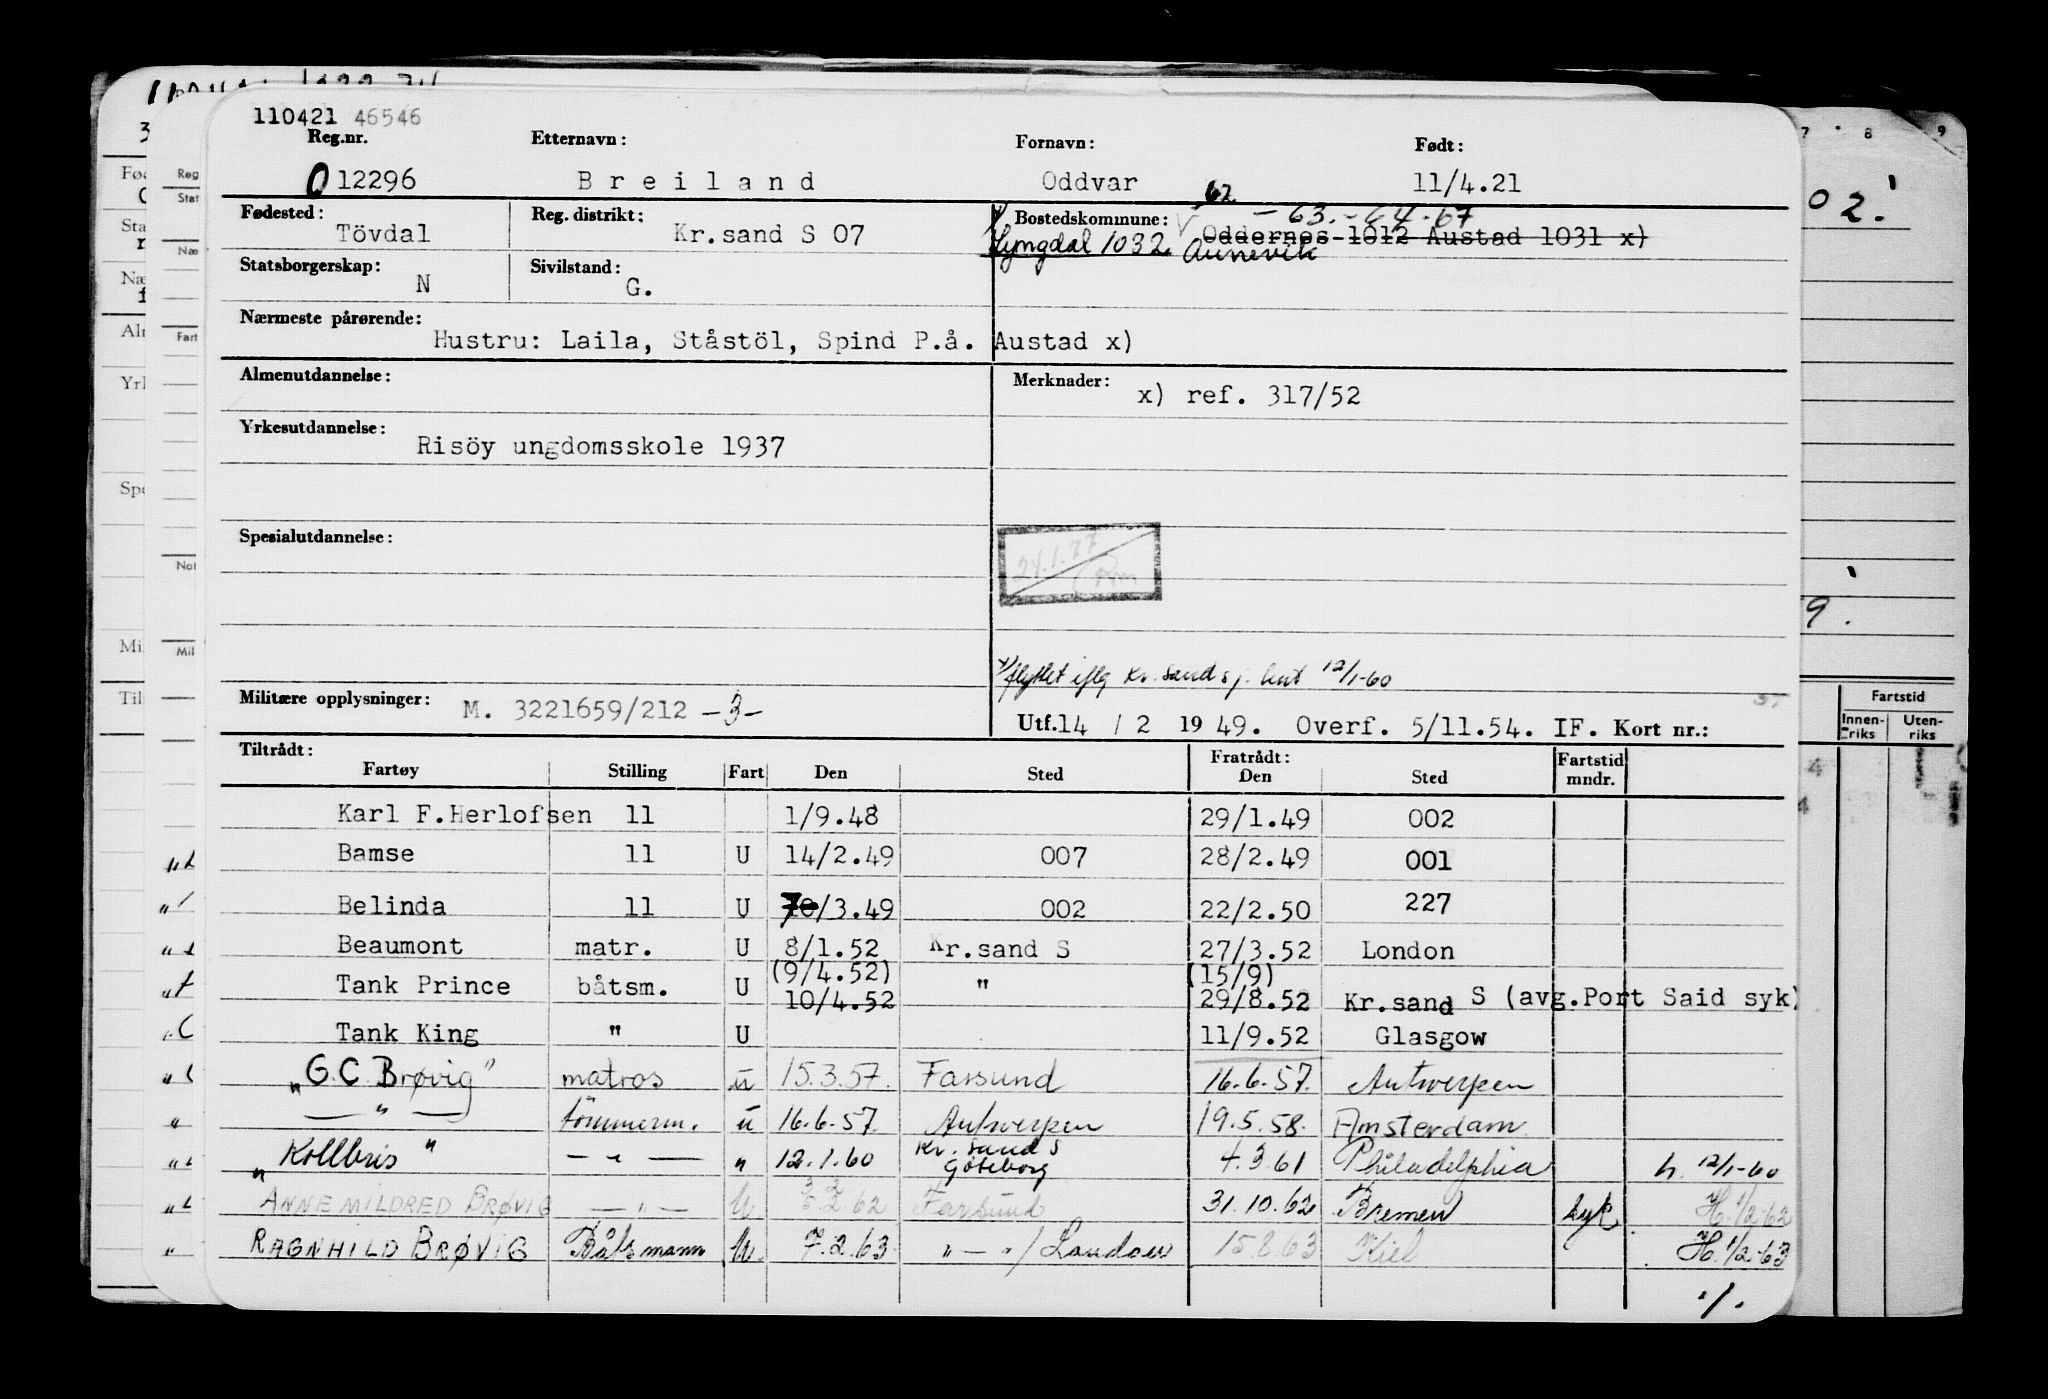 110421 46546
Reg.nr. Etternavn: Fornavn: Født:
012296 Breiland Oddvar 11/4.21
62
Fødested: Reg. distrikt: Bostedskommune: V - 63. - 64. 67
Tövdal Kr.sand S 07 Oddernes 1012 Austad 1031 x)
Lyngdal 1032. Aunevik
Statsborgerskap: Sivilstand:
N G.
Nærmeste pårørende:
Hustru: Laila, Ståstöl, Spind P.å. Austad x)
Almenutdannelse: Merknader:
x) ref. 317/52
Yrkesutdannelse:
Risöy ungdomsskole 1937
Spesialutdannelse:
24.1.77
x) flyttet iflg Kr. sand sj. knt 12/1-60
Militære opplysninger:
M. 3221659/212 -3-
Utf. 14 / 2 19 49. Overf. 5/11.54. IF. Kort nr.:
Tiltrådt: Fratrådt: Fartstid
Fartøy Stilling Fart Den Sted Den Sted mndr.
Karl F.Herlofsen 11 1/9.48 29/1.49 002
Bamse 11 U 14/2.49 007 28/2.49 001
Belinda 11 U 7/3.49 002 22/2.50 227
Beaumont matr. U 8/1.52 Kr.sand S 27/3.52 London
(9/4.52) (15/9)
Tank Prince båtsm. U 10/4.52 " 29/8.52 Kr.sand S (avg.Port Said syk)
Tank King " U 11/9.52 Glasgow
"G.C. Brøvig" matros u 15.3.57. Farsund 16.6.57. Antwerpen
— " — tömmerm. u 16.6.57. Antwerpen 19.5.58. Amsterdam
"Kollbris" — " — " 12.1.60 Kr. sand S Göteborg 4.3.61 Philadelphia h. 12/1-60
ANNE MILDRED BRØVIG — " — U 2.62 Farsund 31.10.62 Bremen syk H. 1/2-62
RAGNHILD BRØVIG Båtsmann U. 7.2.63 " — " / London 15.8.63 Kiel H. 1/2-63
./.
7 8 9
02.
9.
Fartstid
Innenriks Utenriks